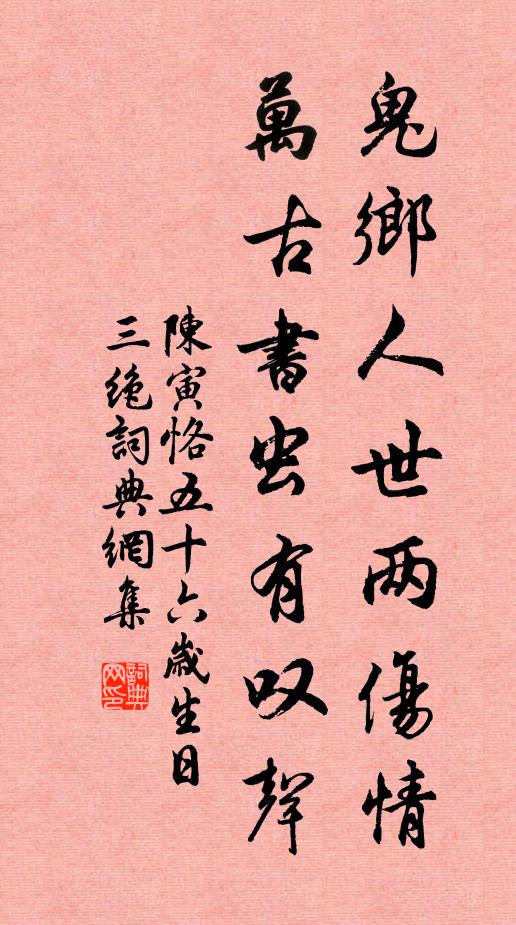 鬼鄉人世两傷情
萬古書虫有叹聲
陳寅恪五十六歲生日
三绝詞典網集
詞典
网印